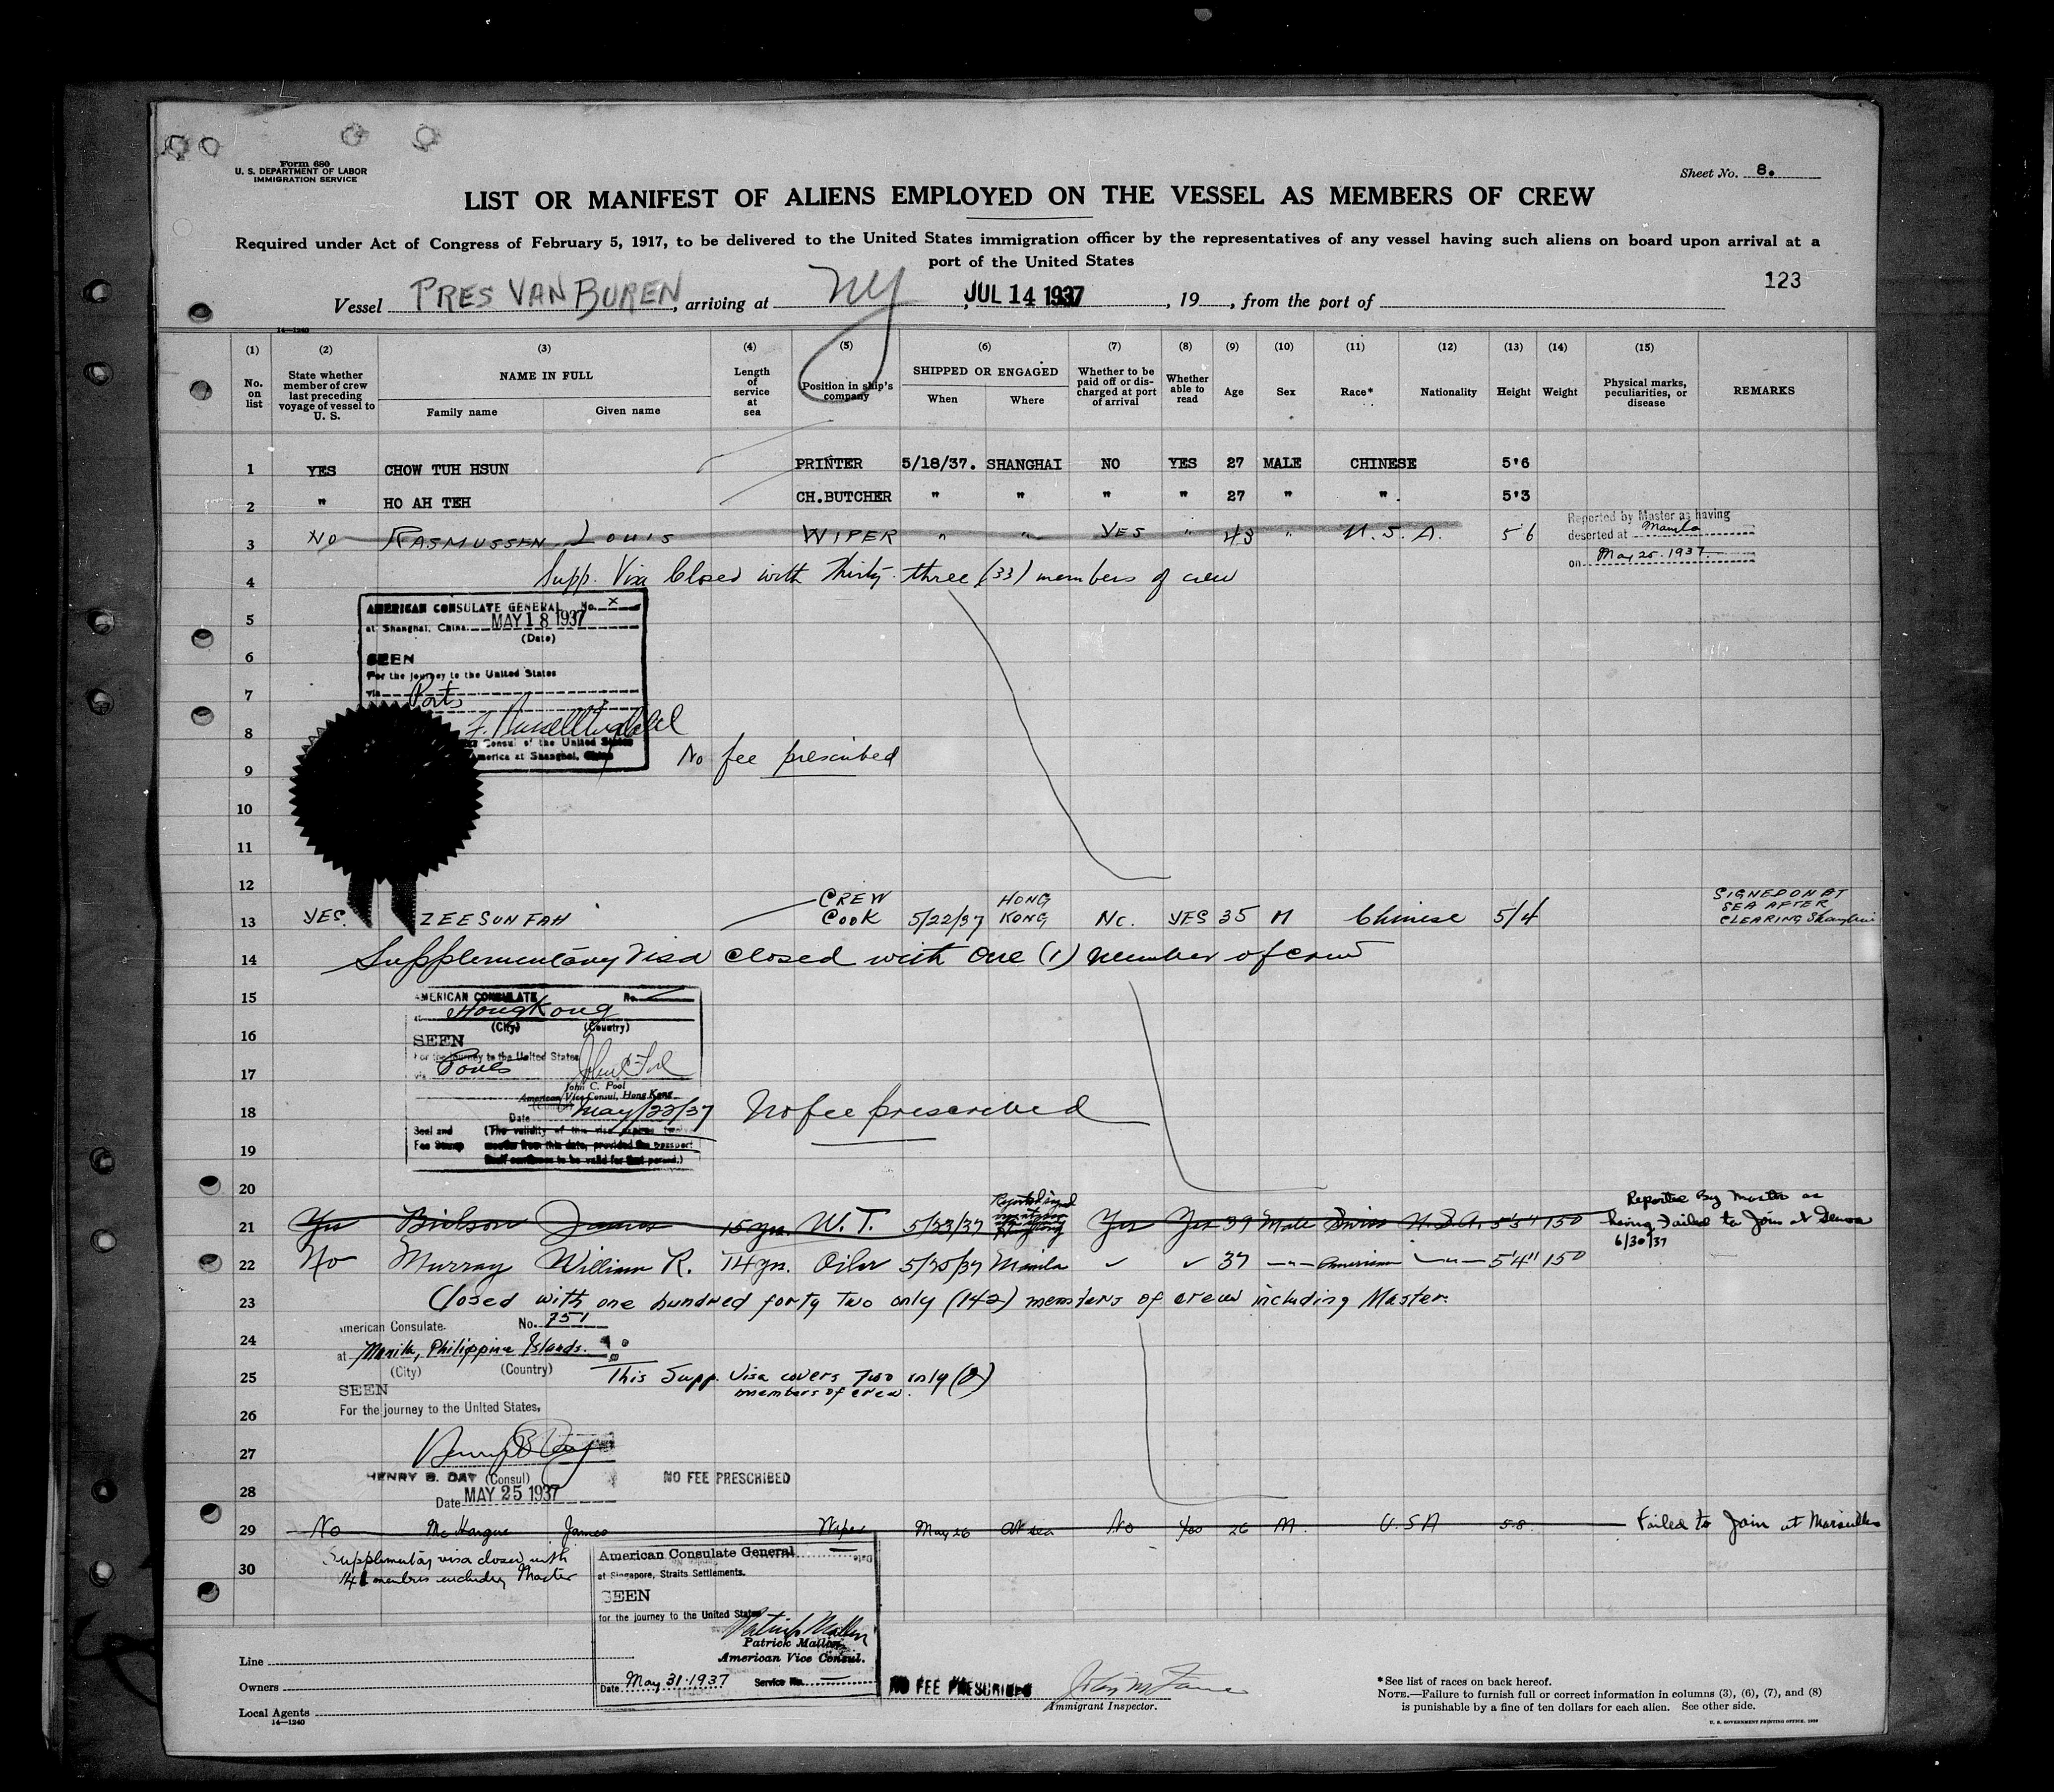 Form 680
U. S. DEPARTMENT OF LABOR
IMMIGRATION SERVICE
Sheet No. 8.
LIST OR MANIFEST OF ALIENS EMPLOYED ON THE VESSEL AS MEMBERS OF CREW
Required under Act of Congress of February 5, 1917, to be delivered to the United States immigration officer by the representatives of any vessel having such aliens on board upon arrival at a
port of the United States
123
Vessel PRES VAN BUREN, arriving at NY, JUL 14 1937, 19, from the port of
14—1240
(1) (2) (3) (4) (5) (6) (7) (8) (9) (10) (11) (12) (13) (14) (15)
No. on list
State whether member of crew last preceding voyage of vessel to U. S.
NAME IN FULL
Family name Given name
Length of service at sea
Position in ship's company
SHIPPED OR ENGAGED
When Where
Whether to be paid off or discharged at port of arrival
Whether able to read
Age Sex Race* Nationality Height Weight
Physical marks, peculiarities, or disease
REMARKS
1 YES CHOW TUH HSUN PRINTER 5/18/37. SHANGHAI NO YES 27 MALE CHINESE 5'6
2 " HO AH TEH CH.BUTCHER " " " " 27 " ". 5'3
3 NO RASMUSSEN LOUIS WIPER " " YES " 43 " U.S.A. 5'6
Reported by Master as having
deserted at Manila
on May 25, 1937.
4 Supp. Visa Closed with Thirty-three (33) members of crew
AMERICAN CONSULATE GENERAL No. x
at Shanghai, China. MAY 18 1937
(Date)
5
6 SEEN
For the journey to the United States
7 via Ports
8
Consul of the United States
America at Shanghai, China
No fee prescribed
9
10
11
12
13 YES. ZEE SUN FAH CREW COOK 5/22/37 HONG KONG No. YES 35 M Chinese 5/4
SIGNED ON AT
SEA AFTER
CLEARING Shanghai
14 Supplementary Visa closed with One (1) member of crew
15 AMERICAN CONSULATE No.
at Hongkong
(City) (Country)
16 SEEN
For the journey to the United States
17 via Ports
John C. Pool
American Vice Consul, Hong Kong
18 Date May/22/37
No fee prescribed
Seal and
Fee Stamp
(The validity of this visa expires twelve
months from this date, provided the passport
itself continues to be valid for that period.)
19
20
21 Yes James 15 yrs. W.T. 5/23/37 Yes Yes 39 Male Swiss U.S.A. 5'3" 150
Reported By Master as
being Failed to Join at Genoa
6/30/37
22 No Murray William R. 14 yrs. Oiler 5/25/37 Manila ✓ ✓ 37 —"— American —"— 5'4" 150
23 Closed with one hundred forty two only (142) members of crew including Master.
American Consulate. No. 751
24 at Manila, Philippine Islands.
(City) (Country)
25 This Supp. Visa covers Two only (2)
members of crew.
SEEN
26 For the journey to the United States,
27
HENRY B. DAY (Consul)
NO FEE PRESCRIBED
28 Date MAY 25 1937
29 No McHargue James Wiper May 26 At sea No Yes 26 M. USA 5-8 Failed to Join at Marseilles
30 Supplementary visa closed with
141 members including Master
American Consulate General
at Singapore, Straits Settlements.
SEEN
for the journey to the United States
Patrick Mallon
Patrick Mallon
American Vice Consul.
Date May 31-1937 Service No.
NO FEE PRESCRIBED
Immigrant Inspector.
Line
Owners
Local Agents
14—1240
*See list of races on back hereof.
NOTE.—Failure to furnish full or correct information in columns (3), (6), (7), and (8)
is punishable by a fine of ten dollars for each alien. See other side.
U. S. GOVERNMENT PRINTING OFFICE